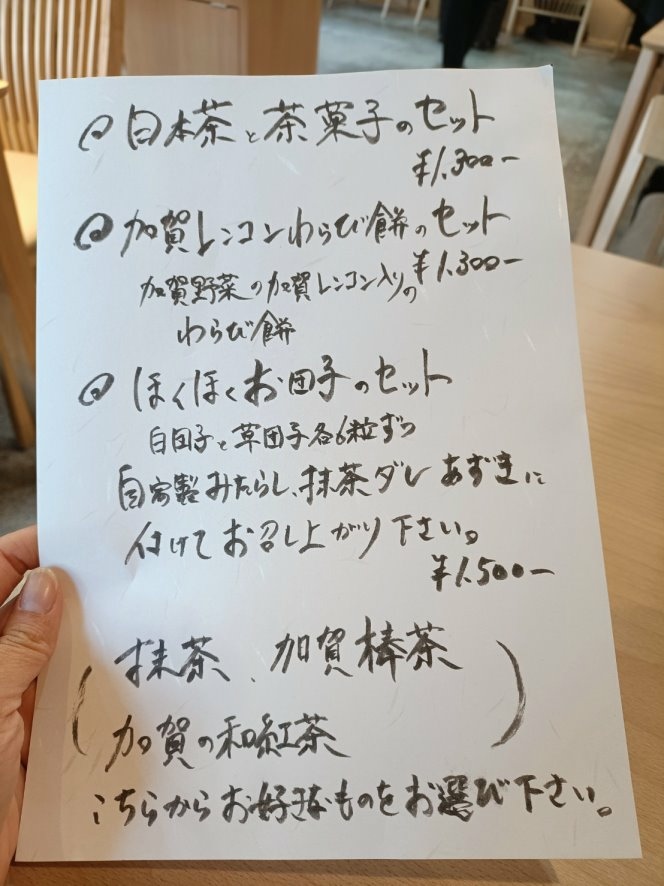 ◎日本茶と茶菓子のセット
¥1,300ー
◎加賀レンコンわらび餅のセット
¥1,300ー
加賀野菜の加賀レンコン入りの
わらび餅
◎ほくほくお団子のセット
白団子と草団子各6粒ずつ
自家製みたらし、抹茶ダレ あずきに
付けてお召し上がり下さい。
¥1,500ー
(抹茶、加賀棒茶
加賀の和紅茶)
こちらからお好きなものをお選び下さい。